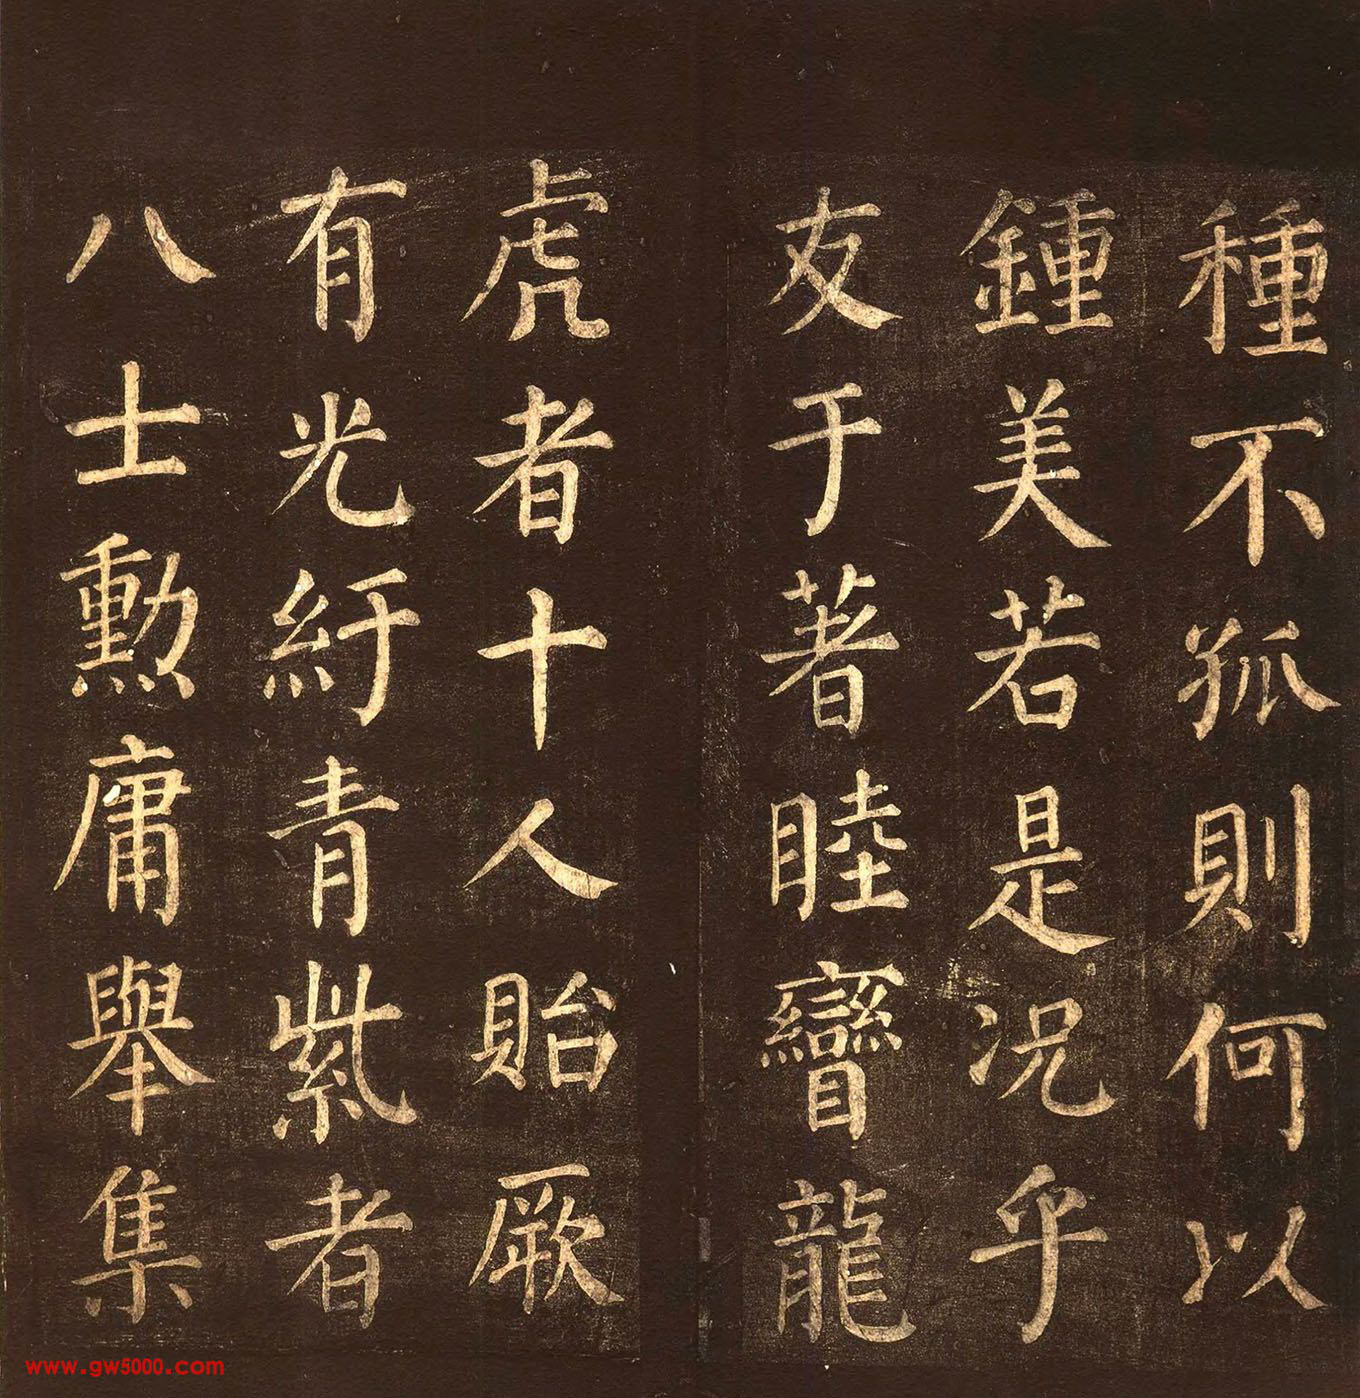 種不孤則何以
鍾美若是況乎
友于著睦䜌龍
虎者十人貽厥
有光紆青紫者
八士勳庸舉集
www.gw5000.com